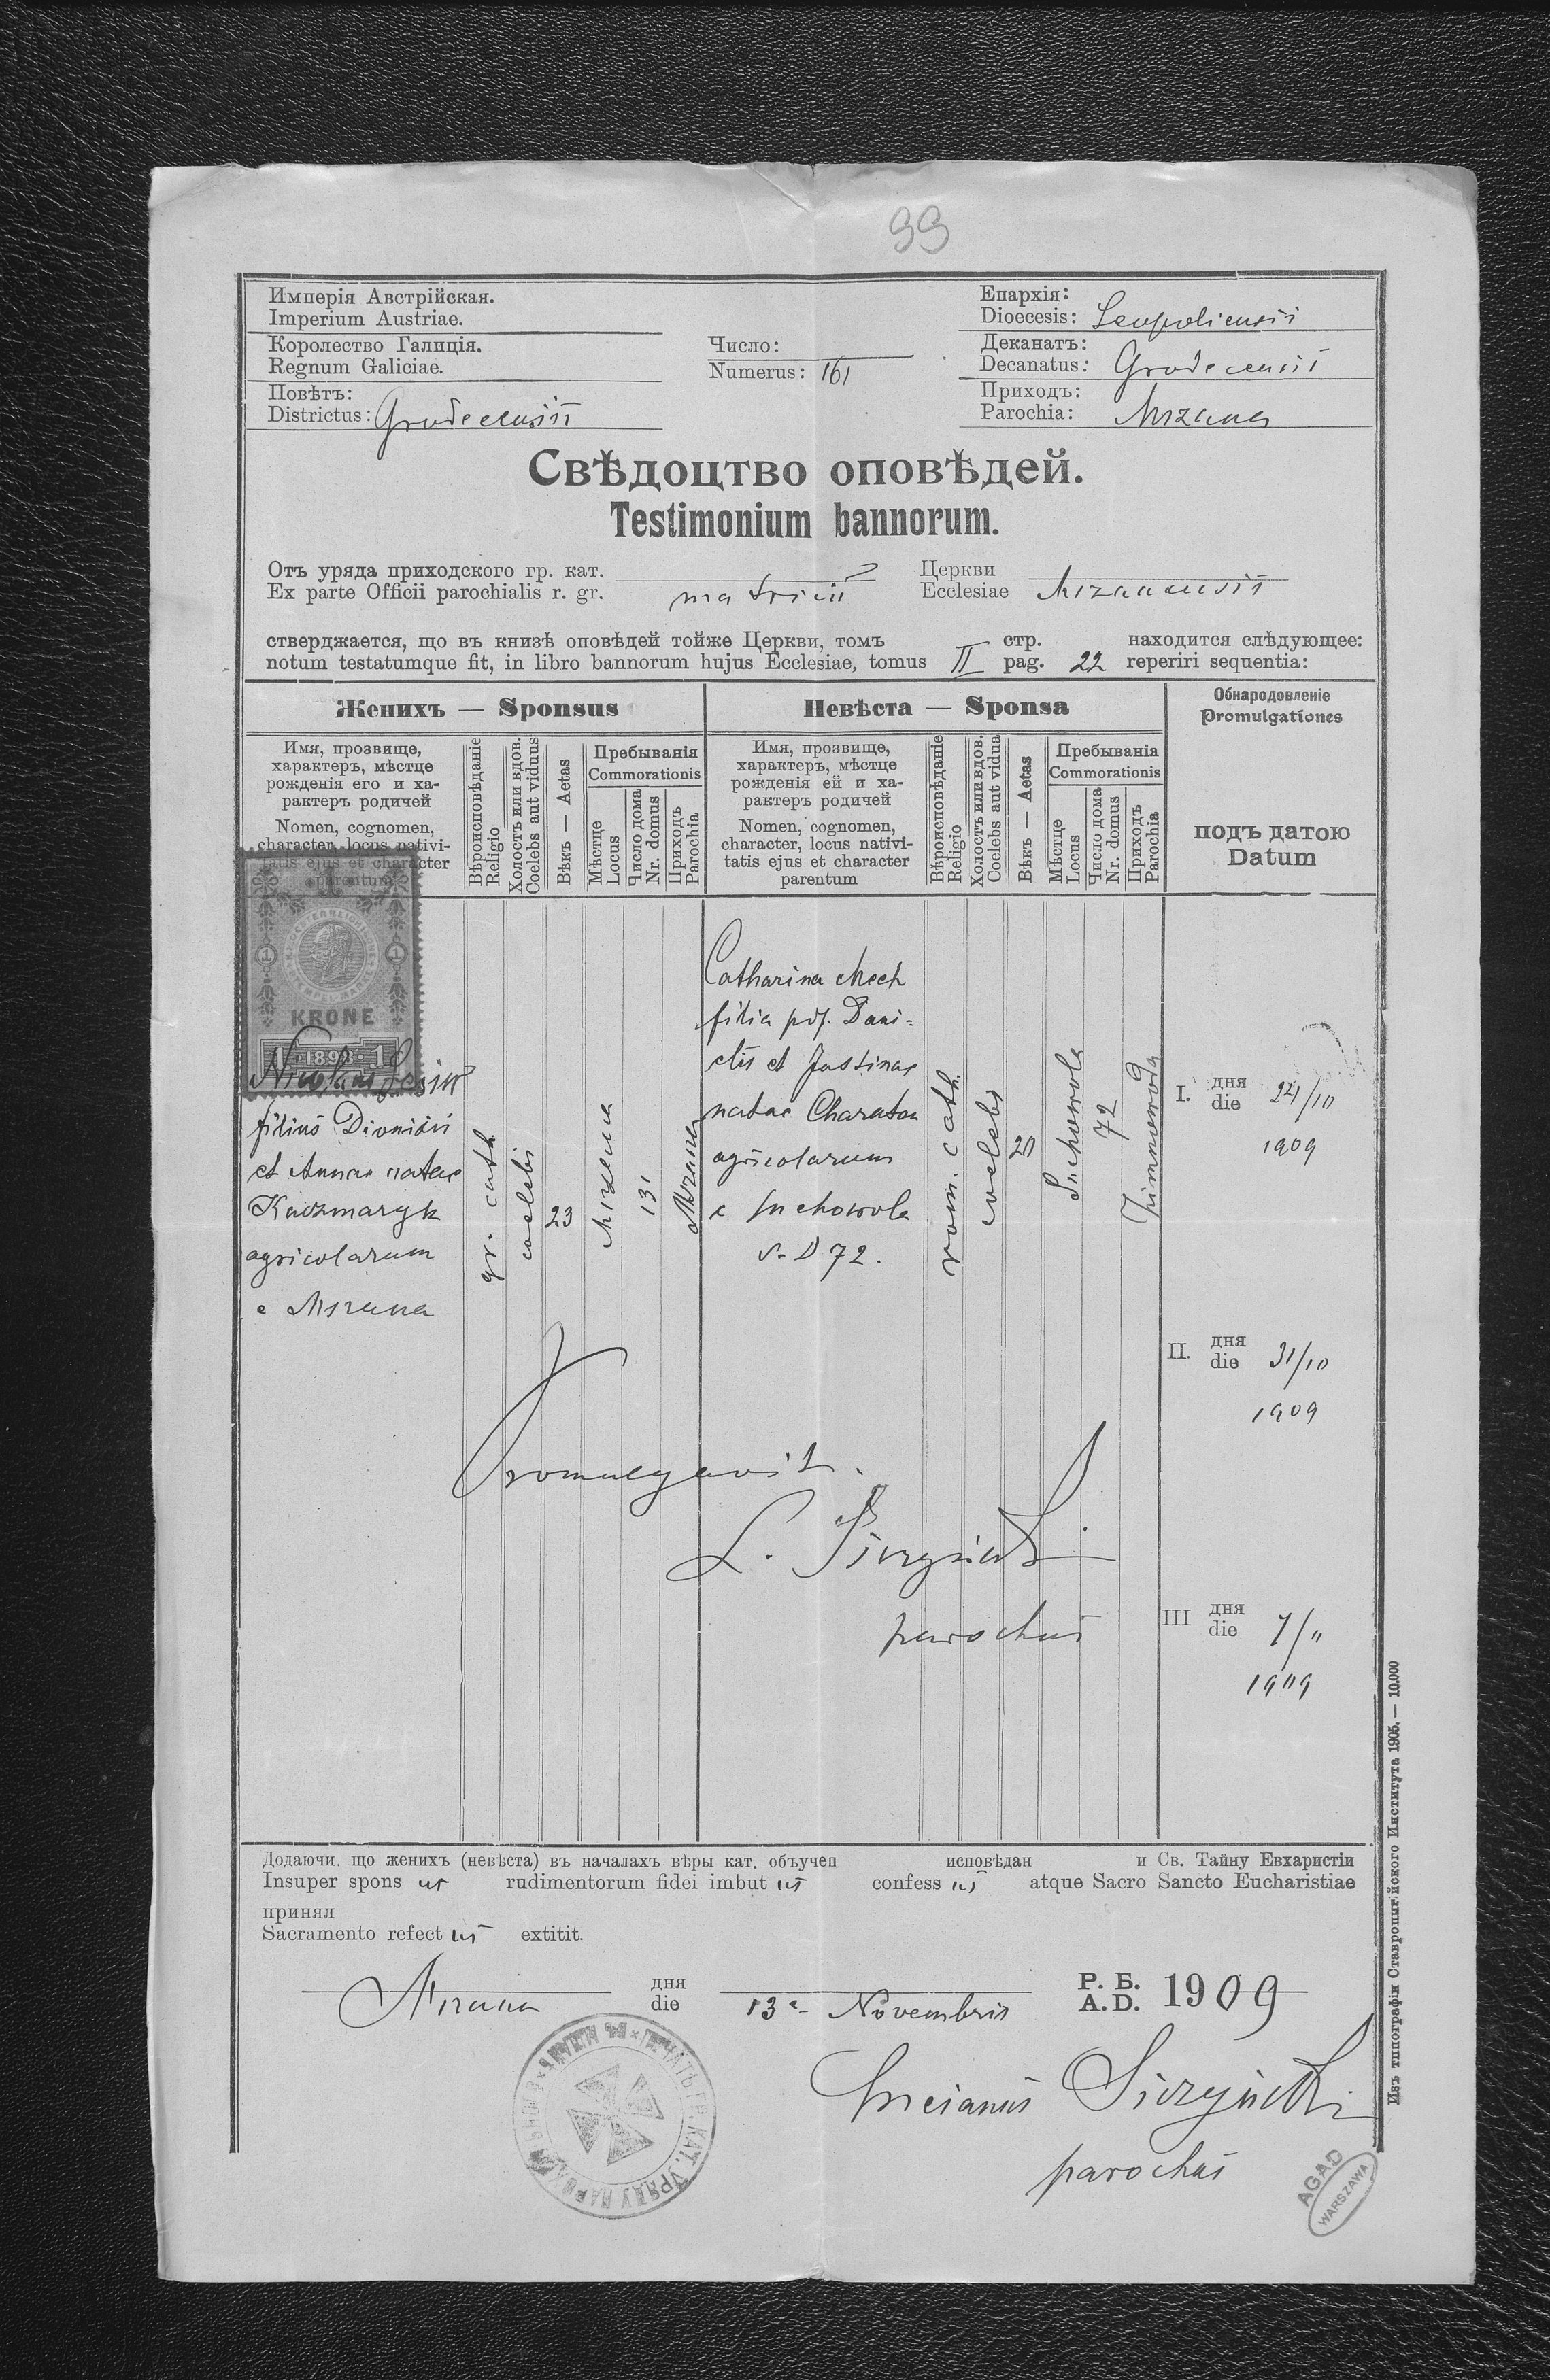 99
Имперія Австрійская.
Imperium Austriae.
Королество Галиція.
Regnum Galiciae.
Повѣтъ:
Districtus: Grodecensis
Число:
Numerus: 161
Епархія:
Dioecesis: Leopoliensis
Деканатъ:
Decanatus: Grodecensis
Приходъ:
Parochia: Mszana
Свѣдоцтво оповѣдей.
Testimonium bannorum.
Отъ уряда приходского гр. кат. Церкви
Ex parte Officii parochialis r. gr. matricis Ecclesiae Mszanensis
стверджается, що въ книзѣ оповѣдей тойже Церкви, томъ стр. находится слѣдующее:
notum testatumque fit, in libro bannorum hujus Ecclesiae, tomus II pag. 22 reperiri sequentia:
Женихъ — Sponsus
Имя, прозвище,
характеръ, мѣстце
рожденія его и ха-
рактеръ родичей
Nomen, cognomen,
character, locus nativi-
tatis ejus et character
parentum
Вѣроисповѣданіе
Religio
Холостъ или вдов.
Coelebs aut viduus
Вѣкъ — Aetas
Пребыванія
Commorationis
Мѣстце
Locus
Число дома
Nr. domus
Приходъ
Parochia
Невѣста — Sponsa
Имя, прозвище,
характеръ, мѣстце
рожденія ей и ха-
рактеръ родичей
Nomen, cognomen,
character, locus nativi-
tatis ejus et character
parentum
Вѣроисповѣданіе
Religio
Холостъ или вдов.
Coelebs aut vidua
Вѣкъ — Aetas
Пребыванія
Commorationis
Мѣстце
Locus
Число дома
Nr. domus
Приходъ
Parochia
Обнародовленіе
Promulgationes
подъ датою
Datum
1 1
KRONE
1 · 1898 · 1
Nicolaus
filius Dionisii
et Annae natae
Kaczmaryk
agricolarum
e Mszana
gr. cath.
coelebs
23
Mszana
131
Mszana
Catharina Mech
filia pdf. Dani-
elis et Justinae
natae Charaton
agricolarum
e Suchowola
s. D 72.
rom. cath.
coelebs
20
Suchowola
72
Zimnowoda
I. дня
die 24/10
1909
II. дня
die 31/10
1909
III дня
die 7/11
1909
Promulgavit.
L.
parochus
Додаючи, що женихъ (невѣста) въ началахъ вѣры кат. объучен исповѣдан и Св. Тайну Евхаристіи
Insuper spons us rudimentorum fidei imbut us confess us atque Sacro Sancto Eucharistiae
принял
Sacramento refect us extitit.
Mszana дня
die 13a Novembris Р. Б.
A. D. 1909
Lucianus
parochus
Изъ типографіи Ставропигійского Института 1905. — 10.000
AGAD
WARSZAWA